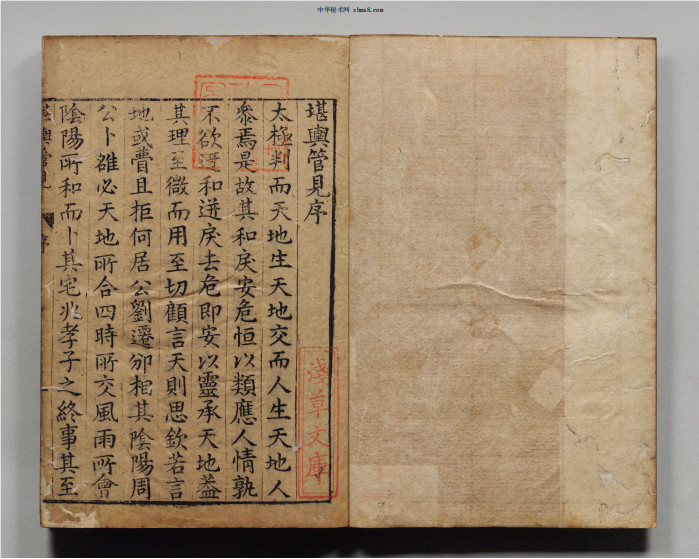 中华秘术网 zhms8.com
堪輿管見序
太極判而天地生天地交而人生天地人
叅焉是故其和戾安危恒以類應人情孰
不欲遷和迸戾去危即安以靈承天地葢
其理至微而用至切顧言天則思欽若言
地或曹且拒何居公劉遷邠相其陰陽周
公卜雒必天地所合四時所交風雨所會
陰陽所和而卜其宅兆孝子之終事其至
堪輿管見
序
淺草文庫